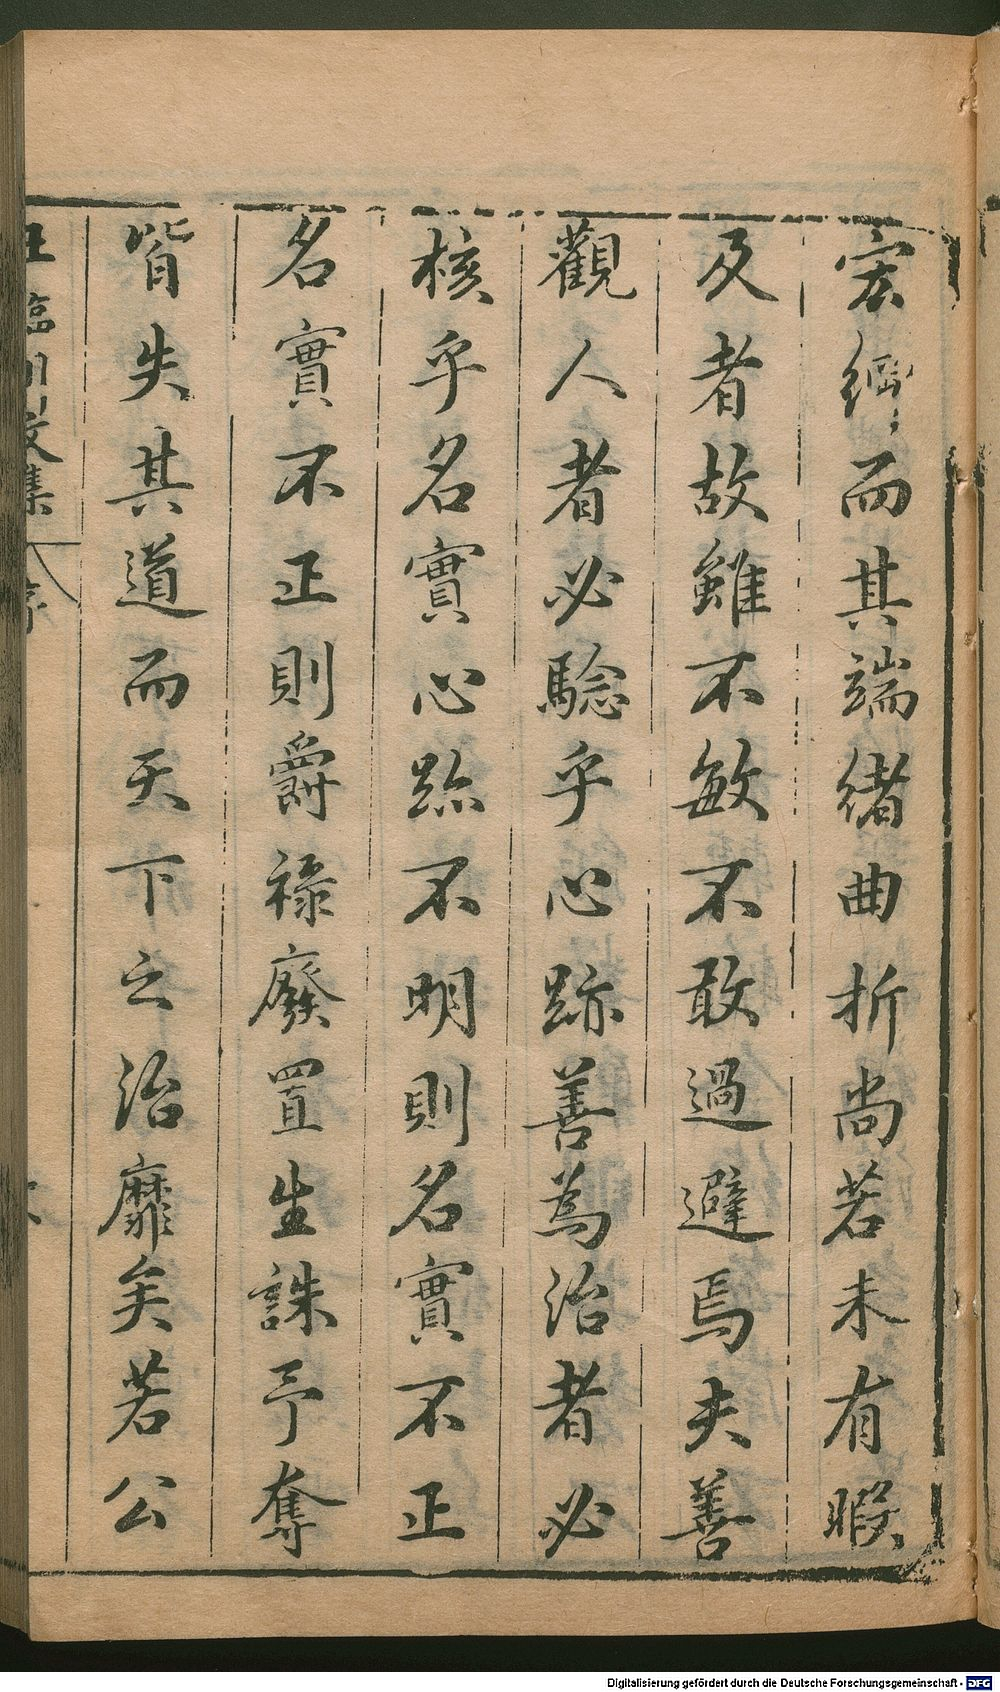 宏綱而其端緒曲折尚若未有暇
及者故雖不敏不敢過避焉夫善
觀人者必驗乎心跡善為治者必
核乎名實心跡不明則名實不正
名實不正則爵祿廢置生誅予奪
皆失其道而天下之治靡矣若公
王臨川文集 序
Digitalisierung gefördert durch die Deutsche Forschungsgemeinschaft - DFG